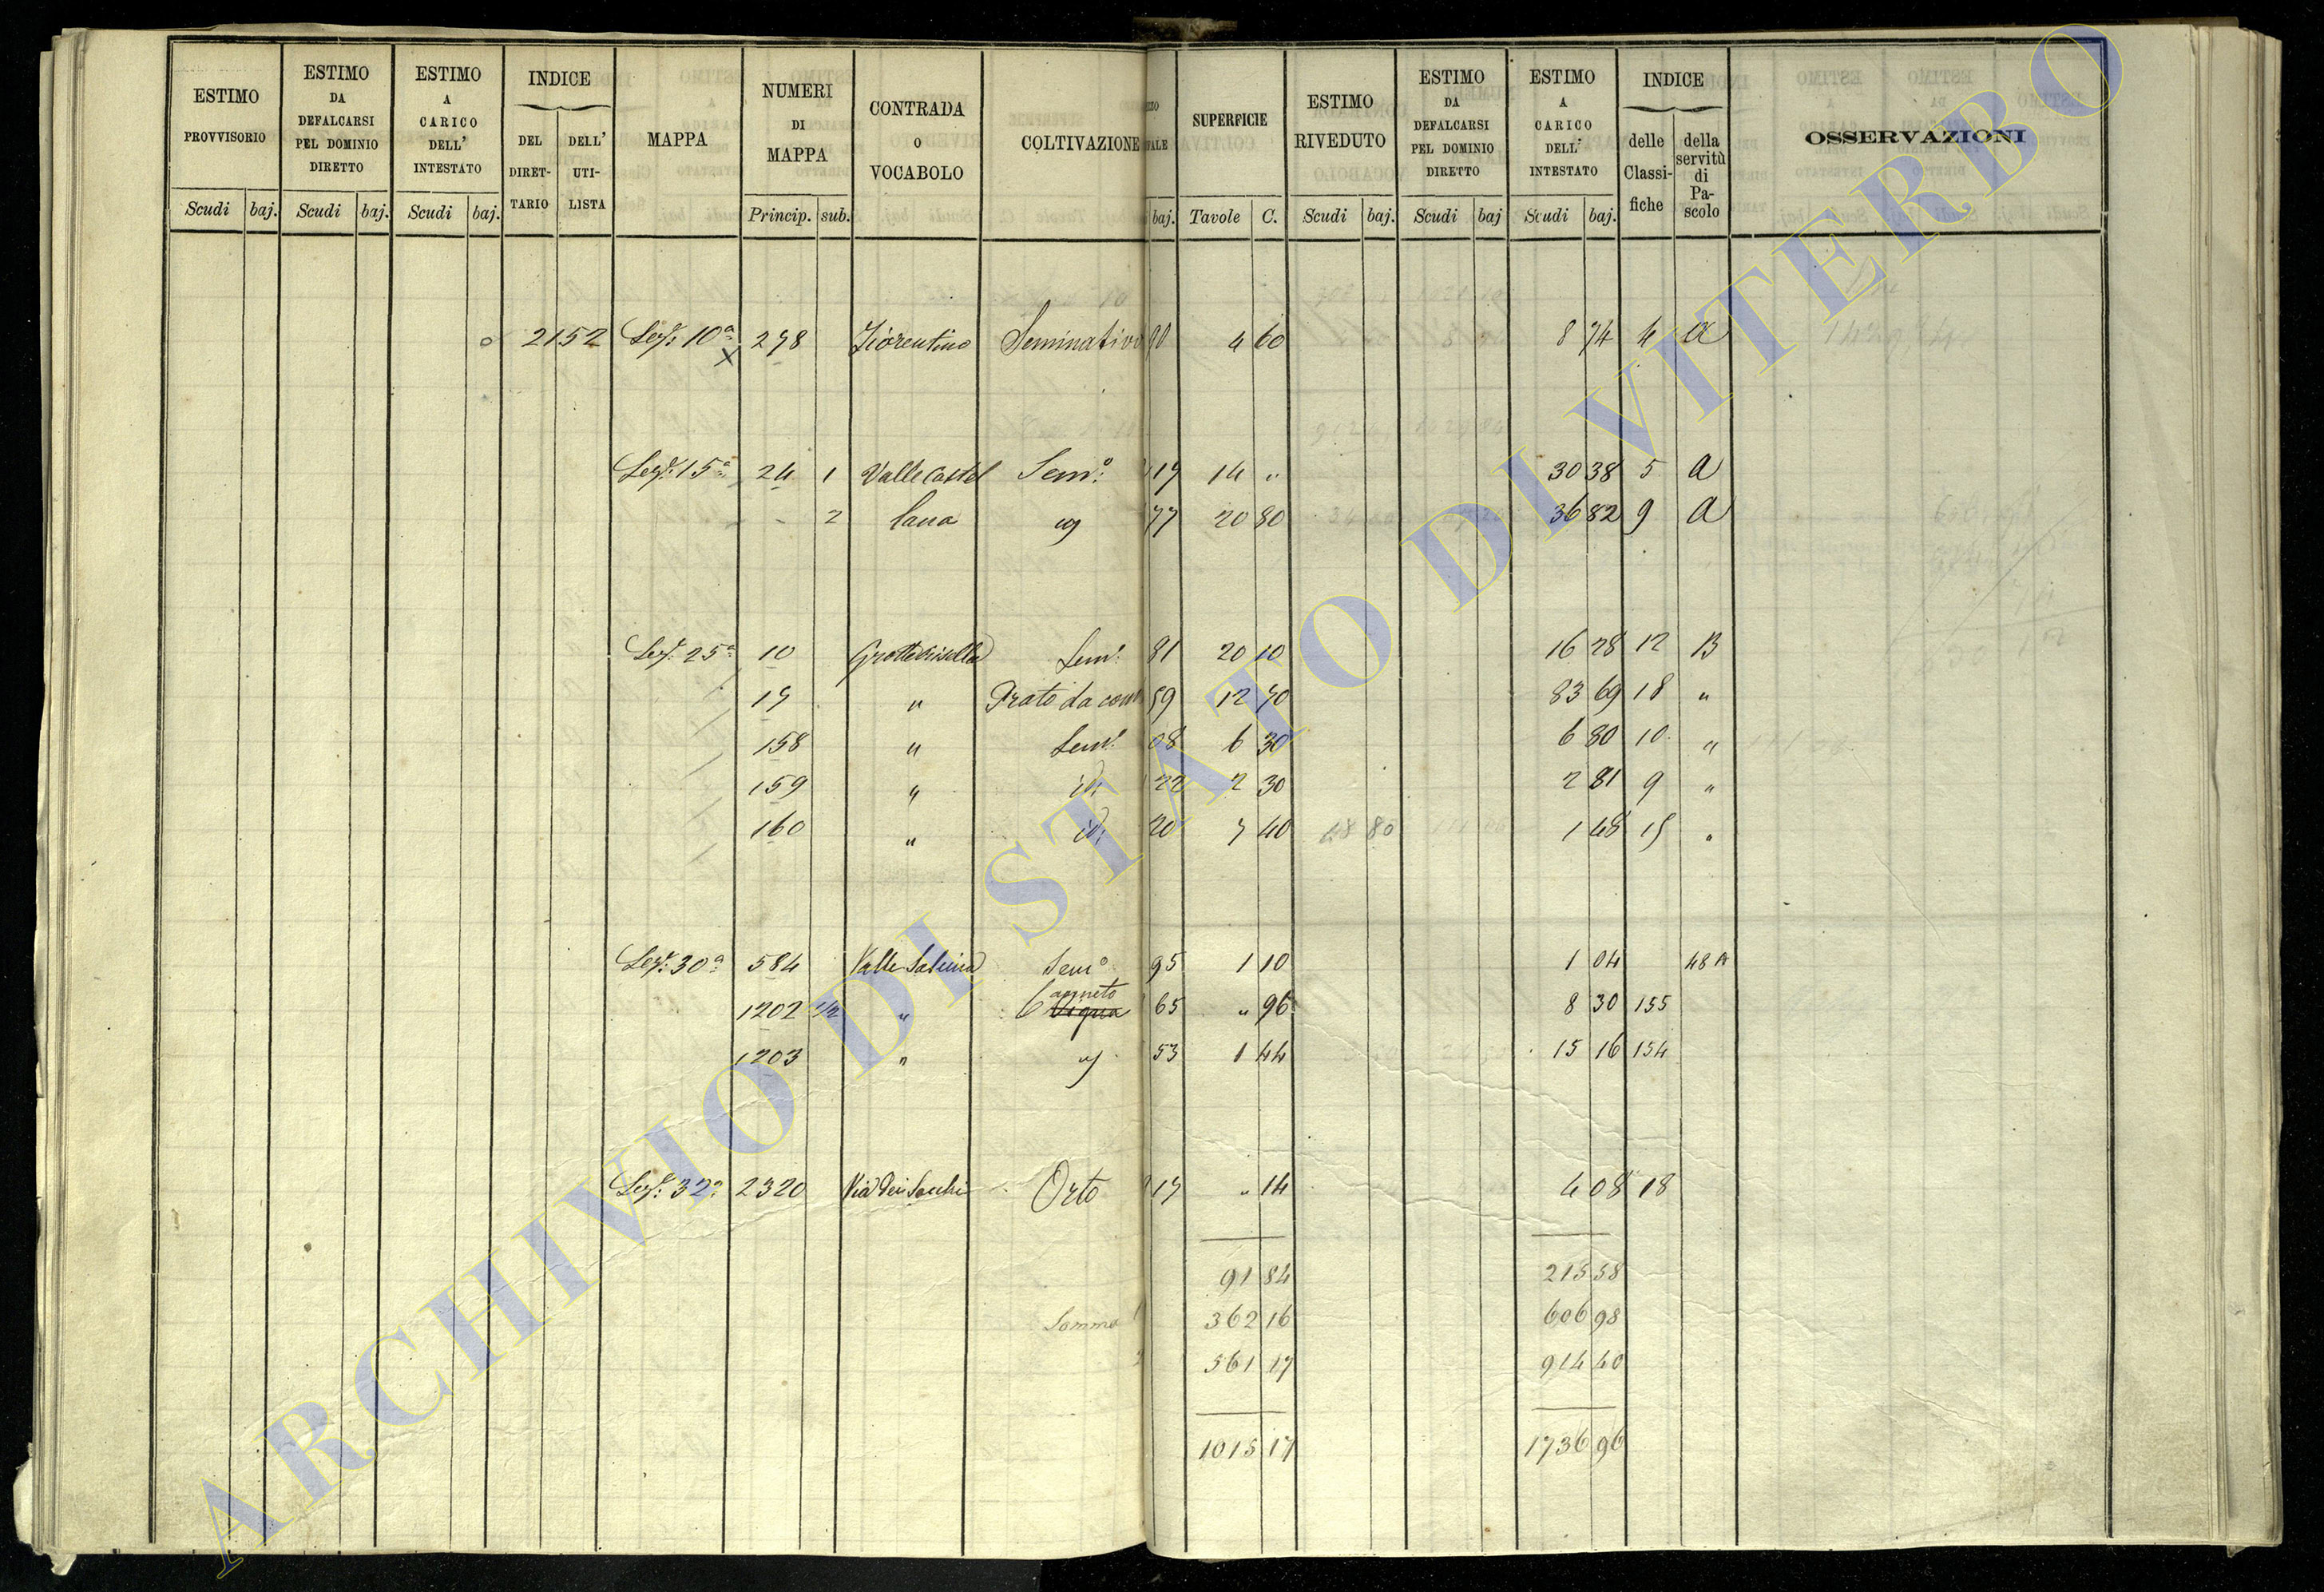 ESTIMO PROVVISORIO
ESTIMO DA DEFALCARSI PEL DOMINIO DIRETTO
ESTIMO A CARICO DELL' INTESTATO
INDICE
DEL DIRET- TARIO
DELL' UTI- LISTA
MAPPA
NUMERI DI MAPPA
CONTRADA O VOCABOLO
COLTIVAZIONE
SUPERFICIE
ESTIMO RIVEDUTO
ESTIMO DA DEFALCARSI PEL DOMINIO DIRETTO
ESTIMO A CARICO DELL' INTESTATO
INDICE
delle Classi- fiche
della servitù di Pa- scolo
OSSERVAZIONI
Scudi baj. Scudi baj. Scudi baj. Princip. sub. baj. Tavole C. Scudi baj. Scudi baj Scudi baj.
2152 Sez. 10a 278 Fiorentino Seminativo 90 4 60 8 74 4 a
x
Sez. 15a 24 1 Valle Castel Semo: 19 14 " 30 38 5 a
2 lana 77 20 80 36 82 9 a
Sez. 25a 10 Sem. 81 20 10 16 28 12 B
17 " Prato da 59 12 70 83 69 18 "
158 " Sem. 08 6 30 6 80 10 "
159 " id. 22 2 30 2 81 9 "
160 " id. 20 7 40 1 48 15 "
Sez. 30a 584 Valle Semo 95 1 10 1 04 48 A
1202 1/2 " Canneto Vigna 65 " 96 8 30 155
1203 " 53 1 44 15 16 154
Sez. 32a 2320 Via dei Orto 17 " 14 4 08 18
91 84 215 58
Somma 362 16 606 98
561 17 914 40
1015 17 1736 96
ARCHIVIO DI STATO DI VITERBO